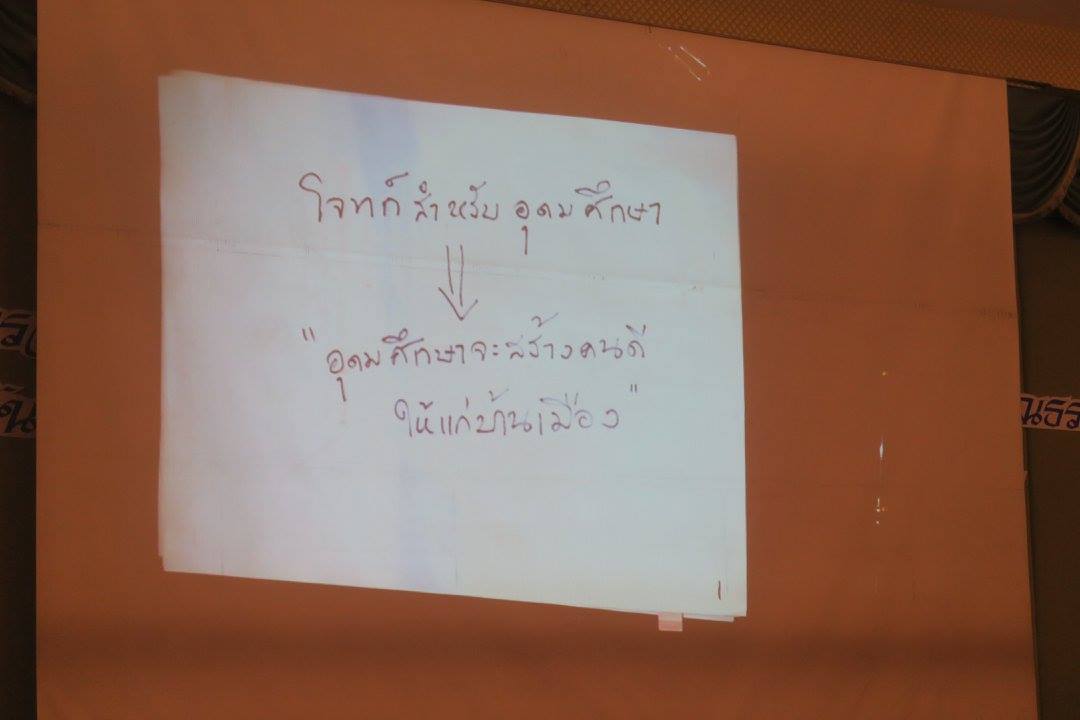 โจทก์ สำหรับ อุดมศึกษา
"อุดมศึกษาจะสร้างคนดี
ให้แก่บ้านเมือง"
1